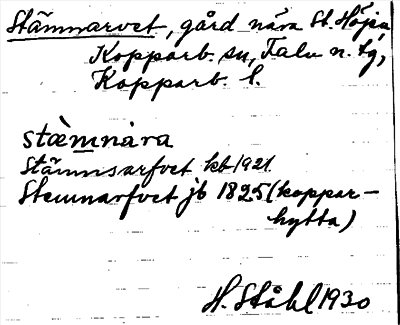 Stämnarvet, gård nära St. Höjen,
Kopparb. sn, Falu n. tg,
Kopparb. l.
stæ̀mnàra
Stämnsarfvet kb 1921
Stemnarfvet jb 1825 (koppar-
hytta)
H. Ståhl 1930